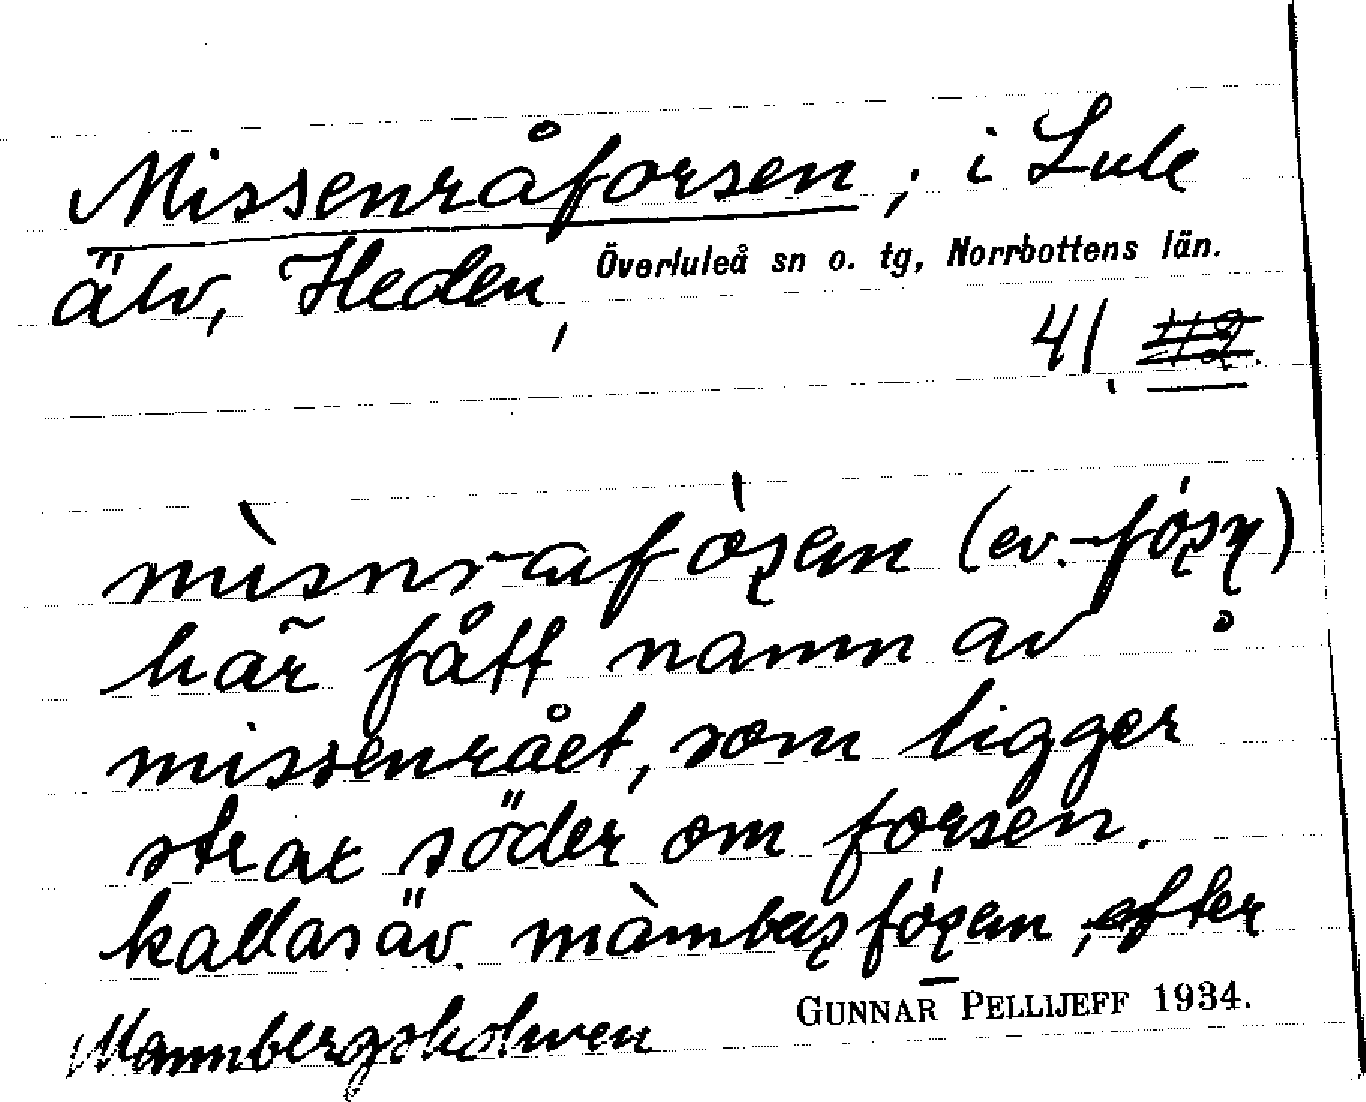 Missenråforsen, i Lule
älv, Heden, Överluleå sn o. tg, Norrbottens län.
41
har fått namn av
missenrået, som ligger
strax söder om forsen.
kallas äv. efter
Mannbergsholmen
GUNNAR PELLIJEFF 1934.